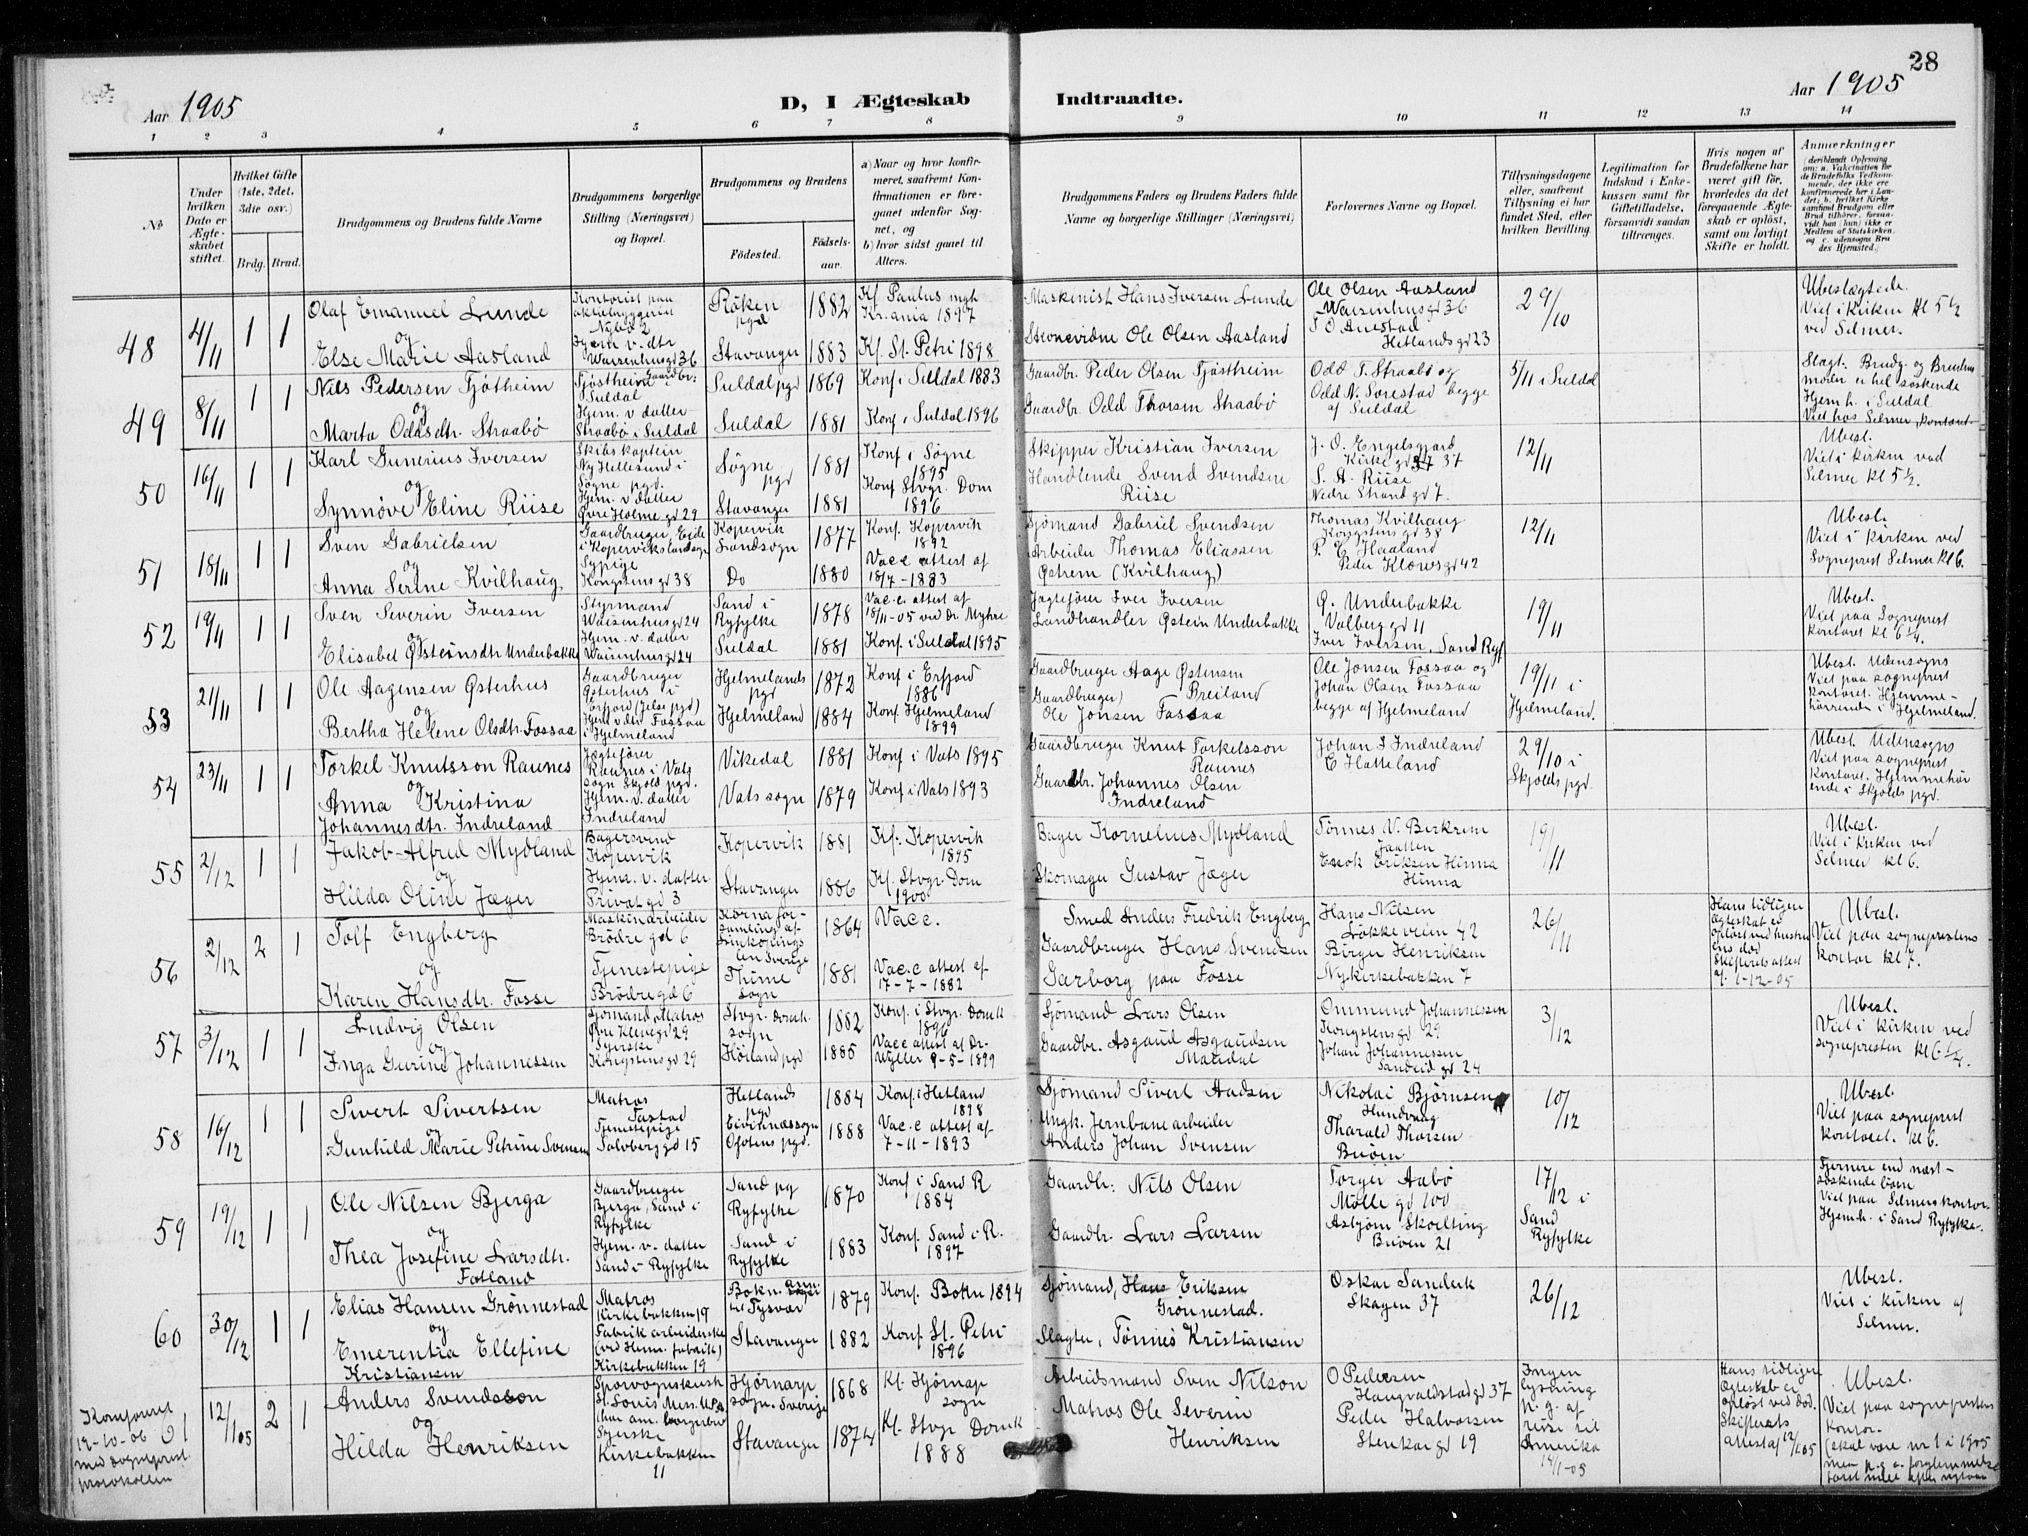 28
Aar 1905
D, I Ægteskab Indtraadte.
Aar 1905
1 2 3 4 5 6 7 8 9 10 11 12 13 14
No
Under hvilken Dato er Ægteskabet stiftet.
Hvilket Gifte (1ste, 2det, 3die osv.)
Brdg. Brud.
Brudgommens og Brudens fulde Navne
Brudgommens borgerlige Stilling (Næringsvei) og Bopæl.
Brudgommens og Brudens
Fødested.
Fødselsaar.
a) Naar og hvor konfirmeret, saafremt Konfirmationen er foregaaet udenfor Sognet, og
b) hvor sidst gaaet til Alters.
Brudgommens Faders og Brudens Faders fulde Navne og borgerlige Stillinger (Næringsvei)
Forlovernes Navne og Bopæl.
Tillysningsdagene eller, saafremt Tillysning ei har fundet Sted, efter hvilken Bevilling.
Legitimation for Indskud i Enkekassen samt for Giftetilladelse, forsaavidt saadan tiltrænges.
Hvis nogen af Brudefolkene har været gift før, hvorledes da det foregaaende Ægteskab er opløst, samt om lovligt Skifte er holdt.
Anmærkninger
(deriblandt Oplysning om: a. Vakcination for de Brudefolks Vedkommende, der ikke ere konfirmerede her i Landet; b. hvilket Kirkesamfund Brudgom eller Brud tilhører, forsaavidt han (hun) ikke er Medlem af Statskirken, og c. udensogns Brudes Hjemsted.)
48 4/11 1 1
Olaf Emanuel Lunde
og
Else Marie Aasland
Kontorist paa
aktiebryggeriet
Nylds 2
Hjem v. dtr
Waisenhusgd 36
Røken pgd 1882
Stavanger 1883
Kf Paulus mgh
Kr.ania 1897
Kf. St. Petri 1898
Maskinist Hans Iversen Lunde
Ole Olsen Aasland
Ole Olsen Aasland
Waisenhusgd 36
Hetlandsgd 23
29/10
Ubeslægtede.
Viet i kirken kl 5 1/2
ved Selmer.
49 8/11 1 1
Nils Pedersen Tjøtheim
og
Marta Oddsdtr. Straabø
Gaardbr:
Tjøstheim i
Suldal
Hjem. v datter
Straabø i Suldal
Suldal pgd 1869
Suldal 1881
Konf i Suldal 1883
Konf i Suldal 1896
Gaardbr. Peder Olsen Tjøstheim
Gaardbr. Odd Thorsen Straabø
Odd T. Straabø og
Odd N. Sørestad begge
af Suldal
5/11 i Suldal
Slagt. Brudg. og Brudens
moder er hel søskende
Hjemh. i Suldal
Viet hos Selmer, kontoret.
50 16/11 1 1
Karl Gunerius Iversen
og
Synnøve Eline Riise
Skibskaptein
Ny Hellesund i
Søgne pgd.
Hjem. v. datter
Øvre Holme gd 29
Søgne pgd 1881
Stavanger 1881
Konf i Søgne
1895
Konf Stvgr. Dom
1896
Skipper Kristian Iversen
Handlende Svend Svendsen
Riise
J. O. Engelsgjerd
Kirke gd 37
S. A. Riise
Nedre Strand gd 7.
12/11
Ubesl.
Viet i kirken ved
Selmer kl 5 1/2.
51 18/11 1 1
Sven Gabrielsen
og
Anna Serine Kvilhaug
Gaardbruger, Eide
i Kopervikslandsogn
Sypige
Kongstensgd 38
Kopervik
Landsogn 1877
Do 1880
Konf. Kopervik
1892
Vacc attest af
18/7 - 1883
Sjømand Gabriel Svendsen
Arbeider Thomas Eliassen
Østrem (Kvilhaug)
Thomas Kvilhaug
Kongstens gd 38
P. E. Haaland
Peder Klows gd 42
12/11
Ubesl.
Viet i kirken ved
Sogneprest Selmer kl 6.
52 19/11 1 1
Sven Severin Iversen
og
Elisabet Østeinsdtr Underbakke
Styrmand
Waisenhusgd 24
Hjem. v. datter
Waisenhusgd 24
Sand i
Ryfylke 1878
Suldal 1881
Vac.c. attest af
18/11-05 ved Dr. Myhre
Konf. i Suldal 1895
Jagtefører Iver Iversen
Landhandler Østein Underbakke
Ø. Underbakke
Valberg gd 11
Iver Iversen, Sand Ryf
19/11
Ubesl.
Viet paa Sogneprest
kontoret kl 6 1/4.
53 21/11 1 1
Ole Aagensen Østerhus
og
Bertha Helene Olsdtr. Fossaa
Gaardbruger
Østerhus i
Erfjord (Jelse pgd)
Hjem v. dtr Fossaa
i Hjelmeland
Hjelmelands
pgd 1872
Hjelmeland 1884
Konf i Erfjord
1886
Konf. Hjelmeland
1899
Gaardbruger Aage Østensen
Breiland
Gaardbruger)
Ole Jonsen Fossaa
Ole Jonsen Fossaa og
Johan Olsen Fossaa
begge af Hjelmeland
19/11 i
Hjelmeland.
Ubesl. Udensogns
Viet paa sogneprest
kontoret. Hjemme-
hørrende i Hjelmeland.
54 23/11 1 1
Torkel Knutsson Raunes
og
Anna Kristina
Johannesdtr. Indreland
Jægtefører
Raunes i Vats
sogn Skjold pgd.
Hjem. v. datter
Indreland
Vikedal 1881
Vats sogn 1879
Konf i Vats 1895
Konf i Vats 1893
Gaardbruger Knut Torkelsson
Raunes
Gaardbr. Johannes Olsen
Indreland
Johan I Indreland
E Hatteland
29/10 i
Skjolds pgd.
Ubesl. Udensogns
Viet paa sogneprest
kontoret. Hjemmehør
ende i Skjolds pgd.
55 2/12 1 1
Jakob Alfred Mydland
og
Hilda Oline Jæger
Bagersvend
Kopervik
Hjem. v. datter
Privat gd 3
Kopervik 1881
Stavanger 1886
Kf. Kopervik
1895
Kf. Stvgr. Dom
1900
Bager Kornelius Mydland
Skomager Gustav Jæger
Tønnes V. Berkrem
Jaatten
Enok Eriksen Hinna
Hinna
19/11
Ubesl.
Viet i kirken ved
Selmer kl 6.
56 2/12 2 1
Tolf Engberg
og
Karen Hansdtr. Fosse
Maskinarbeider
Brødre gd 6
Tjenestepige
Brødre gd 6
Korna for-
samling af
Linkøpings
len Sverige 1864
Thime
sogn 1881
Vacc.
Vac.c attest af
17-7-1882
Smed Anders Fredrik Engberg
Gaardbruger Hans Svendsen
Garborg paa Fosse
Hans Nilsen
Løkkeveien 42
Birger Henriksen
Nykirkebakken 7
26/11
Hans tidligere
ægteskab er
opløst ved hustru
ens død
Skifterets attest
af 1-12-05
Ubesl.
Viet paa sogneprestens
kontor kl 7.
57 3/12 1 1
Ludvig Olsen
og
Inga Gurine Johannessen
Sjømand Matros
Øvre Klevegd 29
Syerske
Kongstensgd 29
Stvgr. Domk.
sogn 1882
Høiland pgd 1885
Konf. i Stvgr. Domk
1896
Vacc attest af Dr.
Wyller 9-5-1899
Sjømand Lars Olsen
Gaardbr. Asgaud Asgaudsen
Maudal
Ommund Johannessen
Kongstens gd 29
Johan Johannessen
Sandeid gd 24
3/12
Ubesl.
Viet i kirken ved
sognepresten kl 6 1/4.
58 16/12 1 1
Sivert Sivertsen
og
Gunhild Marie Petrine Svensen
Matros
Tastad
Tjenestepige
Solvberggd 15
Hetlands
pgd 1884
Evindnæssogn
Ofotens pgd. 1888
Konf. i Hetland
1898
Vac.c attest af
7-11-1893
Sjømand Sivert Aadsen
Ungk. Jernbanearbeider
Anders Johan Svensen
Nikolai Bjørnsen
Hundvaag
Tharald Thorsen
Buøen
10/12
Ubesl.
Viet paa sogneprest
kontoret. kl 6.
59 19/12 1 1
Ole Nilsen Bjerga
og
Thea Josefine Larsdtr.
Fatland
Gaardbruger
Bjerga, Sand i
Ryfylke
Hjem. v. datter
Sand i Ryfylke
Sand pg
Ryfylke 1870
Sand i
Ryfylke 1883
Konf i Sand R
1884
Konf. Sand i R.
1897
Gaardbr: Nils Olsen
Gaardbr. Lars Larsen
Torger Aabø
Mølle gd 100
Asbjørn Skoelting
Buøen 21
17/12 i
Sand
Ryfylke
Fjernere end næst-
søskendebørn
Viet paa Selmers kontor.
Hjemh. i Sand Ryfylke.
60 30/12 1 1
Elias Hansen Grønnestad
og
Emerentia Ellefine
Kristiansen
Matros
Kirkebakken 19
Fabrikarbeiderske
(ved Herm. fabrik)
Kirkebakken 19
Bokn. ann.
til Tysvær 1879
Stavanger 1882
Konf. Bokn 1894
Konf St. Petri
1896
Sjømand, Hans Eriksen
Grønnestad.
Slagter, Tønnes Kristiansen
Oskar Sanderk
Skagen 37
26/12
Ubesl.
Viet i kirken af
Selmer.
Konfereret
12-10-06
med sogneprest
protokollen
61 12/1 05 2 1
Anders Svendsson
og
Hilda Henriksen
Sporvognskusk
St. Louis Miss. U.S.A
(har am. borgerbrev)
Syerske
Kirkebakken
11
Hjørnarp
sogn. Sverige 1868
Stavanger 1874
Kf. Hjørnap
sogn
Kf Stvgr Domk
1888
Arbeidsmand Sven Nilson
Matros Ole Severin
Henriksen
O Pedersen
Haugvaldstadgd 37
Peder Halvorsen
Stenkargd 19
Ingen
lysning
p. g. af
reise til
Amerika
14/1-05
Hans tidligere
Ægteskab er
opløst ved død.
Skifterets
attest af 12/1 05
Ubesl.
Viet paa sogneprestens
kontor.
(skal være nr 1 i 1905
men p. g. a. forglemmelse